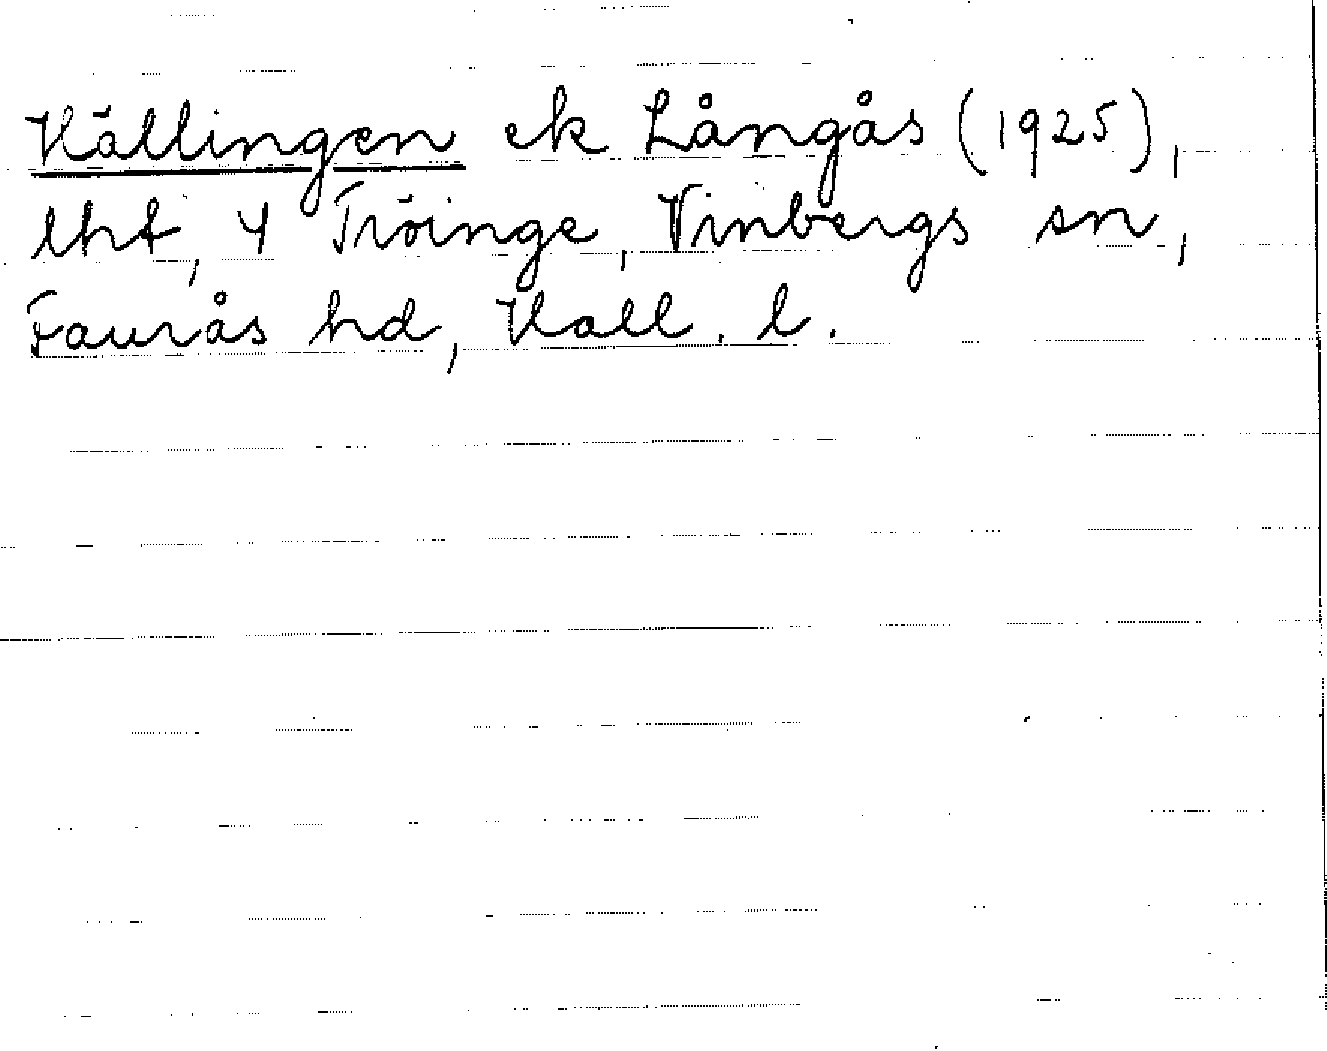 Hällingen ek Långås (1925),
lht, 4 Tröinge, Vinbergs sn,
Faurås hd, Hall. l.